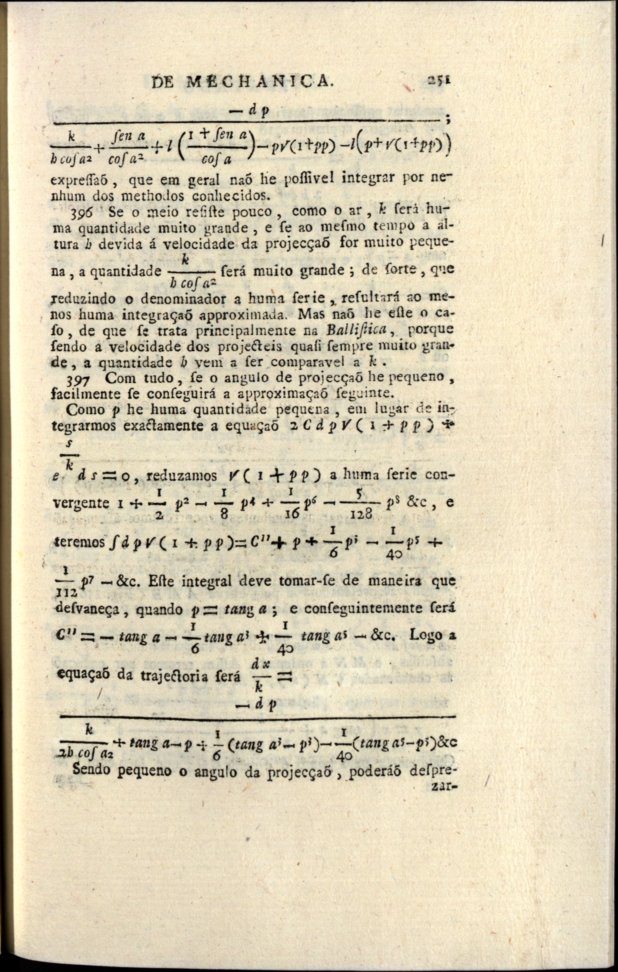 DE MECHANICA. 251
— d p
k/(b coſ a²) + ſen a/coſ a² + l ( (1 + ſen a)/coſ a ) — p√(1+pp) — l(p+√(1+pp)) ;
expreſſaõ, que em geral naõ he poſſivel integrar por ne-
nhum dos methodos conhecidos.
396 Se o meio reſiſte pouco, como o ar, k ſerá hu-
ma quantidade muito grande, e ſe ao meſmo tempo a al-
tura b devida á velocidade da projecçaõ for muito peque-
na, a quantidade k/(b coſ a²) ſerá muito grande; de ſorte, que
reduzindo o denominador a huma ſerie, reſultará ao me-
nos huma integraçaõ approximada. Mas naõ he eſte o ca-
ſo, de que ſe trata principalmente na Balliſtica, porque
ſendo a velocidade dos projecteis quaſi ſempre muito gran-
de, a quantidade b vem a ſer comparavel a k.
397 Com tudo, ſe o angulo de projecçaõ he pequeno,
facilmente ſe conſeguirá a approximaçaõ ſeguinte.
Como p he huma quantidade pequena, em lugar de in-
tegrarmos exactamente a equaçaõ 2 C d p √ ( 1 + p p ) +
s/k
e d s = 0, reduzamos √ ( 1 + p p ) a huma ſerie con-
vergente 1 + 1/2 p² — 1/8 p⁴ + 1/16 p⁶ — 5/128 p⁸ &c, e
teremos ſ d p √ ( 1 + p p ) = C'' + p + 1/6 p³ — 1/40 p⁵ +
1/112 p⁷ — &c. Eſte integral deve tomar-ſe de maneira que
deſvaneça, quando p = tang a ; e conſeguintemente ſerá
C'' = — tang a — 1/6 tang a³ + 1/40 tang a⁵ — &c. Logo a
equaçaõ da trajectoria ſerá d x/k =
— d p
k/(2b coſ a²) + tang a — p + 1/6 (tang a³ — p³) — 1/40 (tang a⁵ — p⁵) &c
Sendo pequeno o angulo da projecçaõ, poderáõ deſpre-
zar-